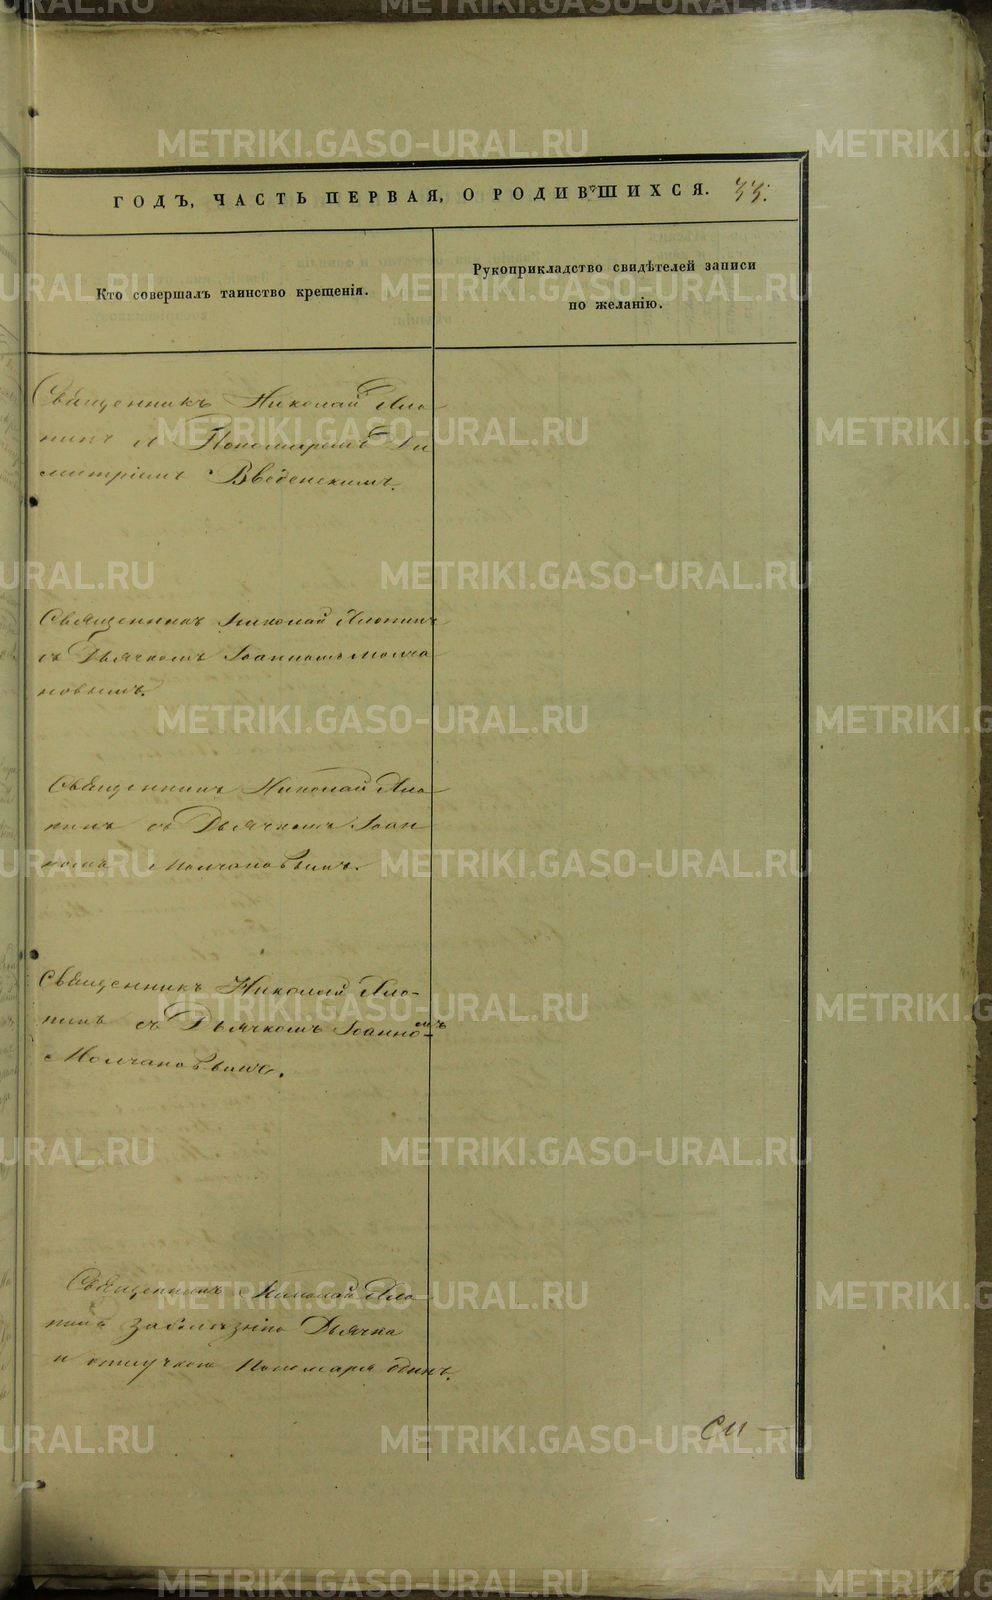 ГОДЪ, ЧАСТЬ ПЕРВАЯ, О РОДИВШИХСЯ. 33.
Кто совершалъ таинство крещенія.
Рукоприкладство свидѣтелей записи
по желанію.
Священникъ Николай Ляпо
съ Пономаремъ Ди
митріемъ Введенскимъ.
Священникъ Николай
съ Дьячкомъ Іоанномъ Молча
новымъ.
Священникъ Николай
съ Дьячкомъ Іоан
номъ Молчановымъ.
Священникъ Николай
съ Дьячкомъ Іоанномъ
Молчановымъ.
Священникъ Николай
за болѣзнію Дьячка
и отлучкою Пономаря одинъ.
METRIKI.GASO-URAL.RU